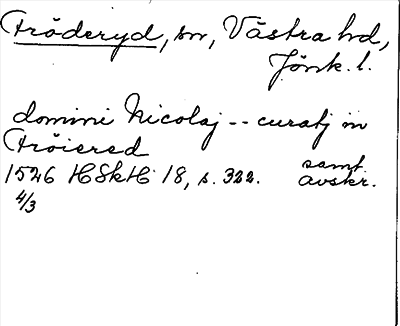 Fröderyd, sn, Västra hd,
Jönk. l.
domini Nicolaj -- curatj in
Fröiered
1526 HSkH 18, s. 322. samt avskr.
4/3